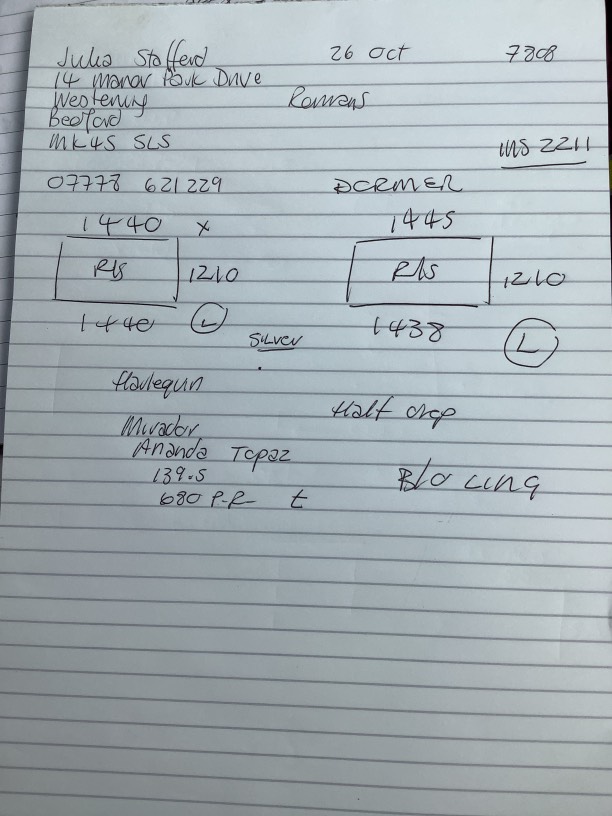 Julia Stafferd 26 Oct 7308
14 Manor Park Drive
Westening Romans
Bedford
MK45 5LS INS 2211
07778 621229 DORMER
1440 x 1445
R/s 1210 R/s 1210
1440 L 1438 L
Silver
Harlequin
Half drop
Mirador
Ananda Topaz
139.5 B/o Lining
680 P.R t